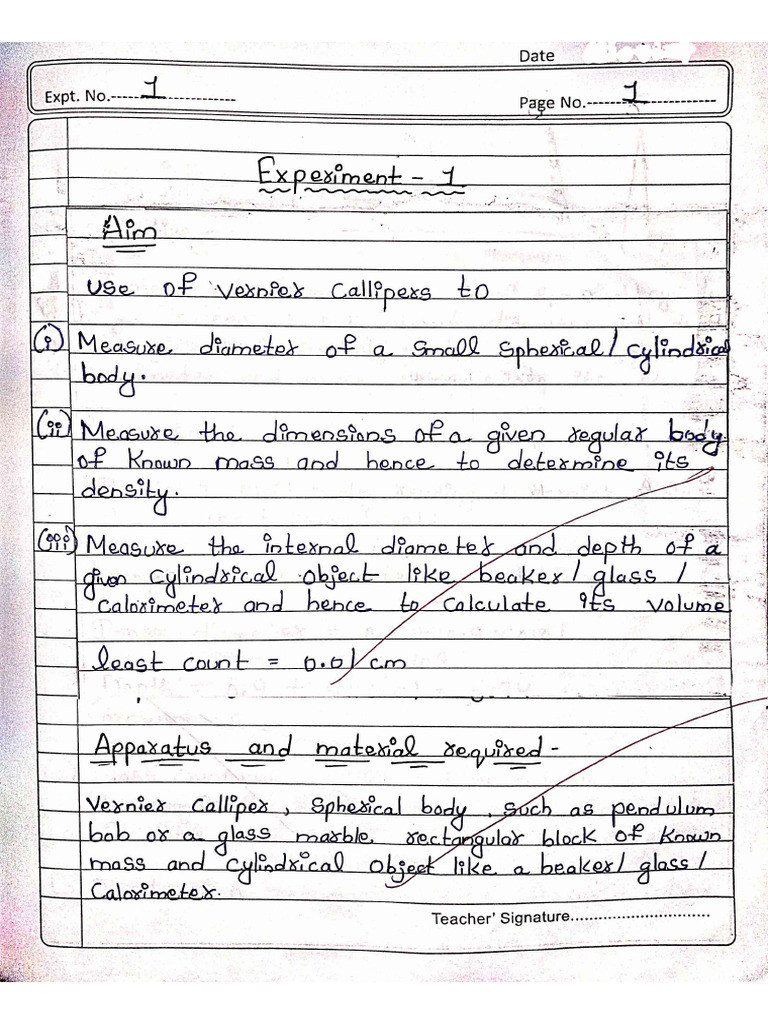 Date
Expt. No.---1---
Page No.---1---
Experiment - 1
Aim
Use of Vernier Callipers to
(i) Measure diameter of a small spherical/cylindrical
body.
(ii) Measure the dimensions of a given regular body
of known mass and hence to determine its
density.
(iii) Measure the internal diameter and depth of a
given cylindrical object like beaker/glass/
calorimeter and hence to calculate its volume
least count = 0.01 cm
Apparatus and material required -
Vernier Calliper, Spherical body, such as pendulum
bob or a glass marble, rectangular block of known
mass and cylindrical object like a beaker/glass/
Calorimeter.
Teacher' Signature..............................